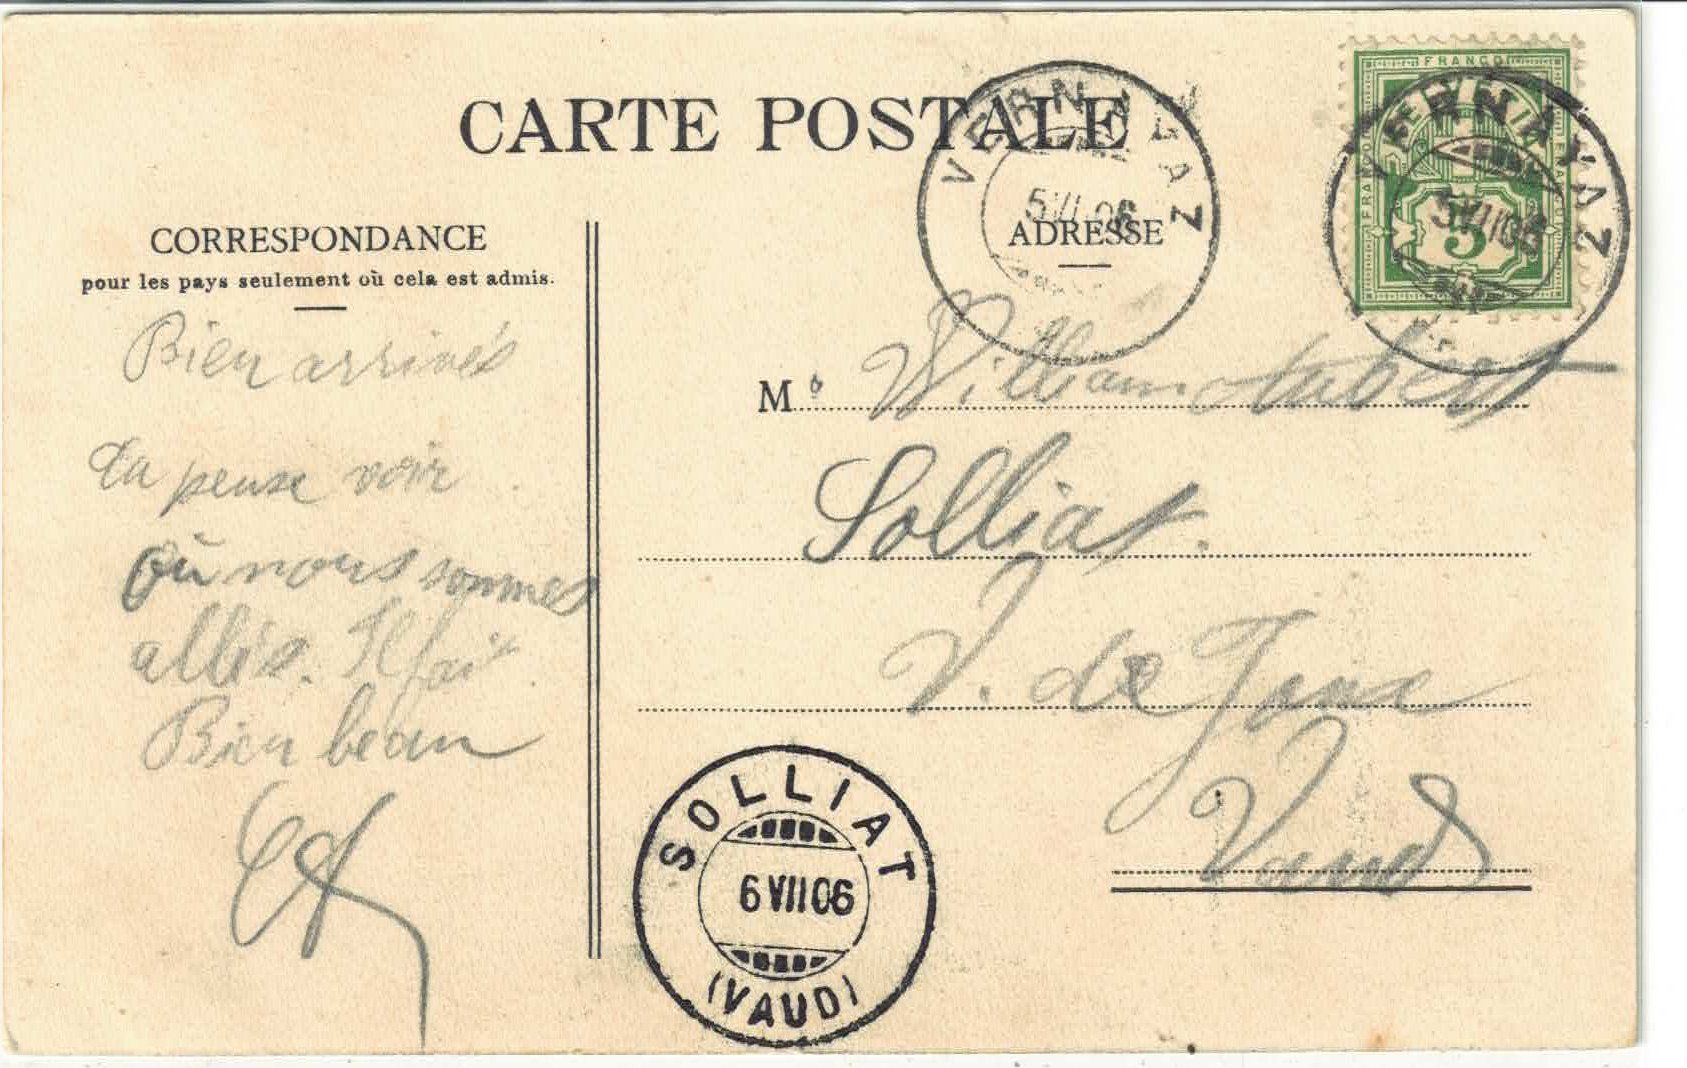 CARTE POSTALE
VERNAYAZ
5 VII 06
FRANCO
VERNAYAZ
5 VII 06
5
CORRESPONDANCE
pour les pays seulement où cela est admis.
ADRESSE
Bien arrivés
Ta pense voir
où nous sommes
allés. Il fait
Bien beau
M. William Aubert
Solliat.
V. de Joux
Vaud
SOLLIAT
6 VII 06
(VAUD)